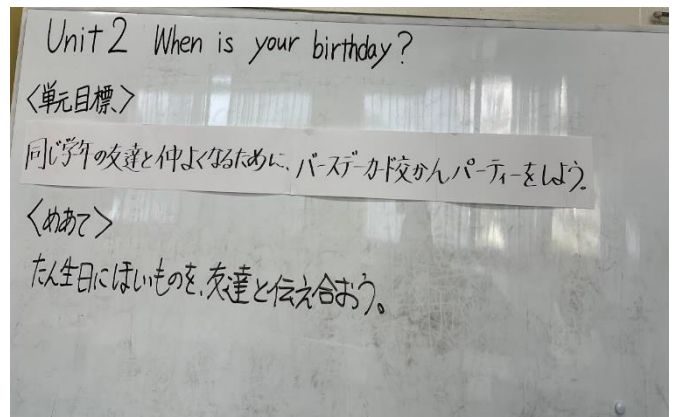 Unit 2 When is your birthday?
<単元目標>
同じ学年の友達と仲よくなるために、バースデーカード交かんパーティーをしよう。
<めあて>
たん生日にほしいものを、友達と伝え合おう。